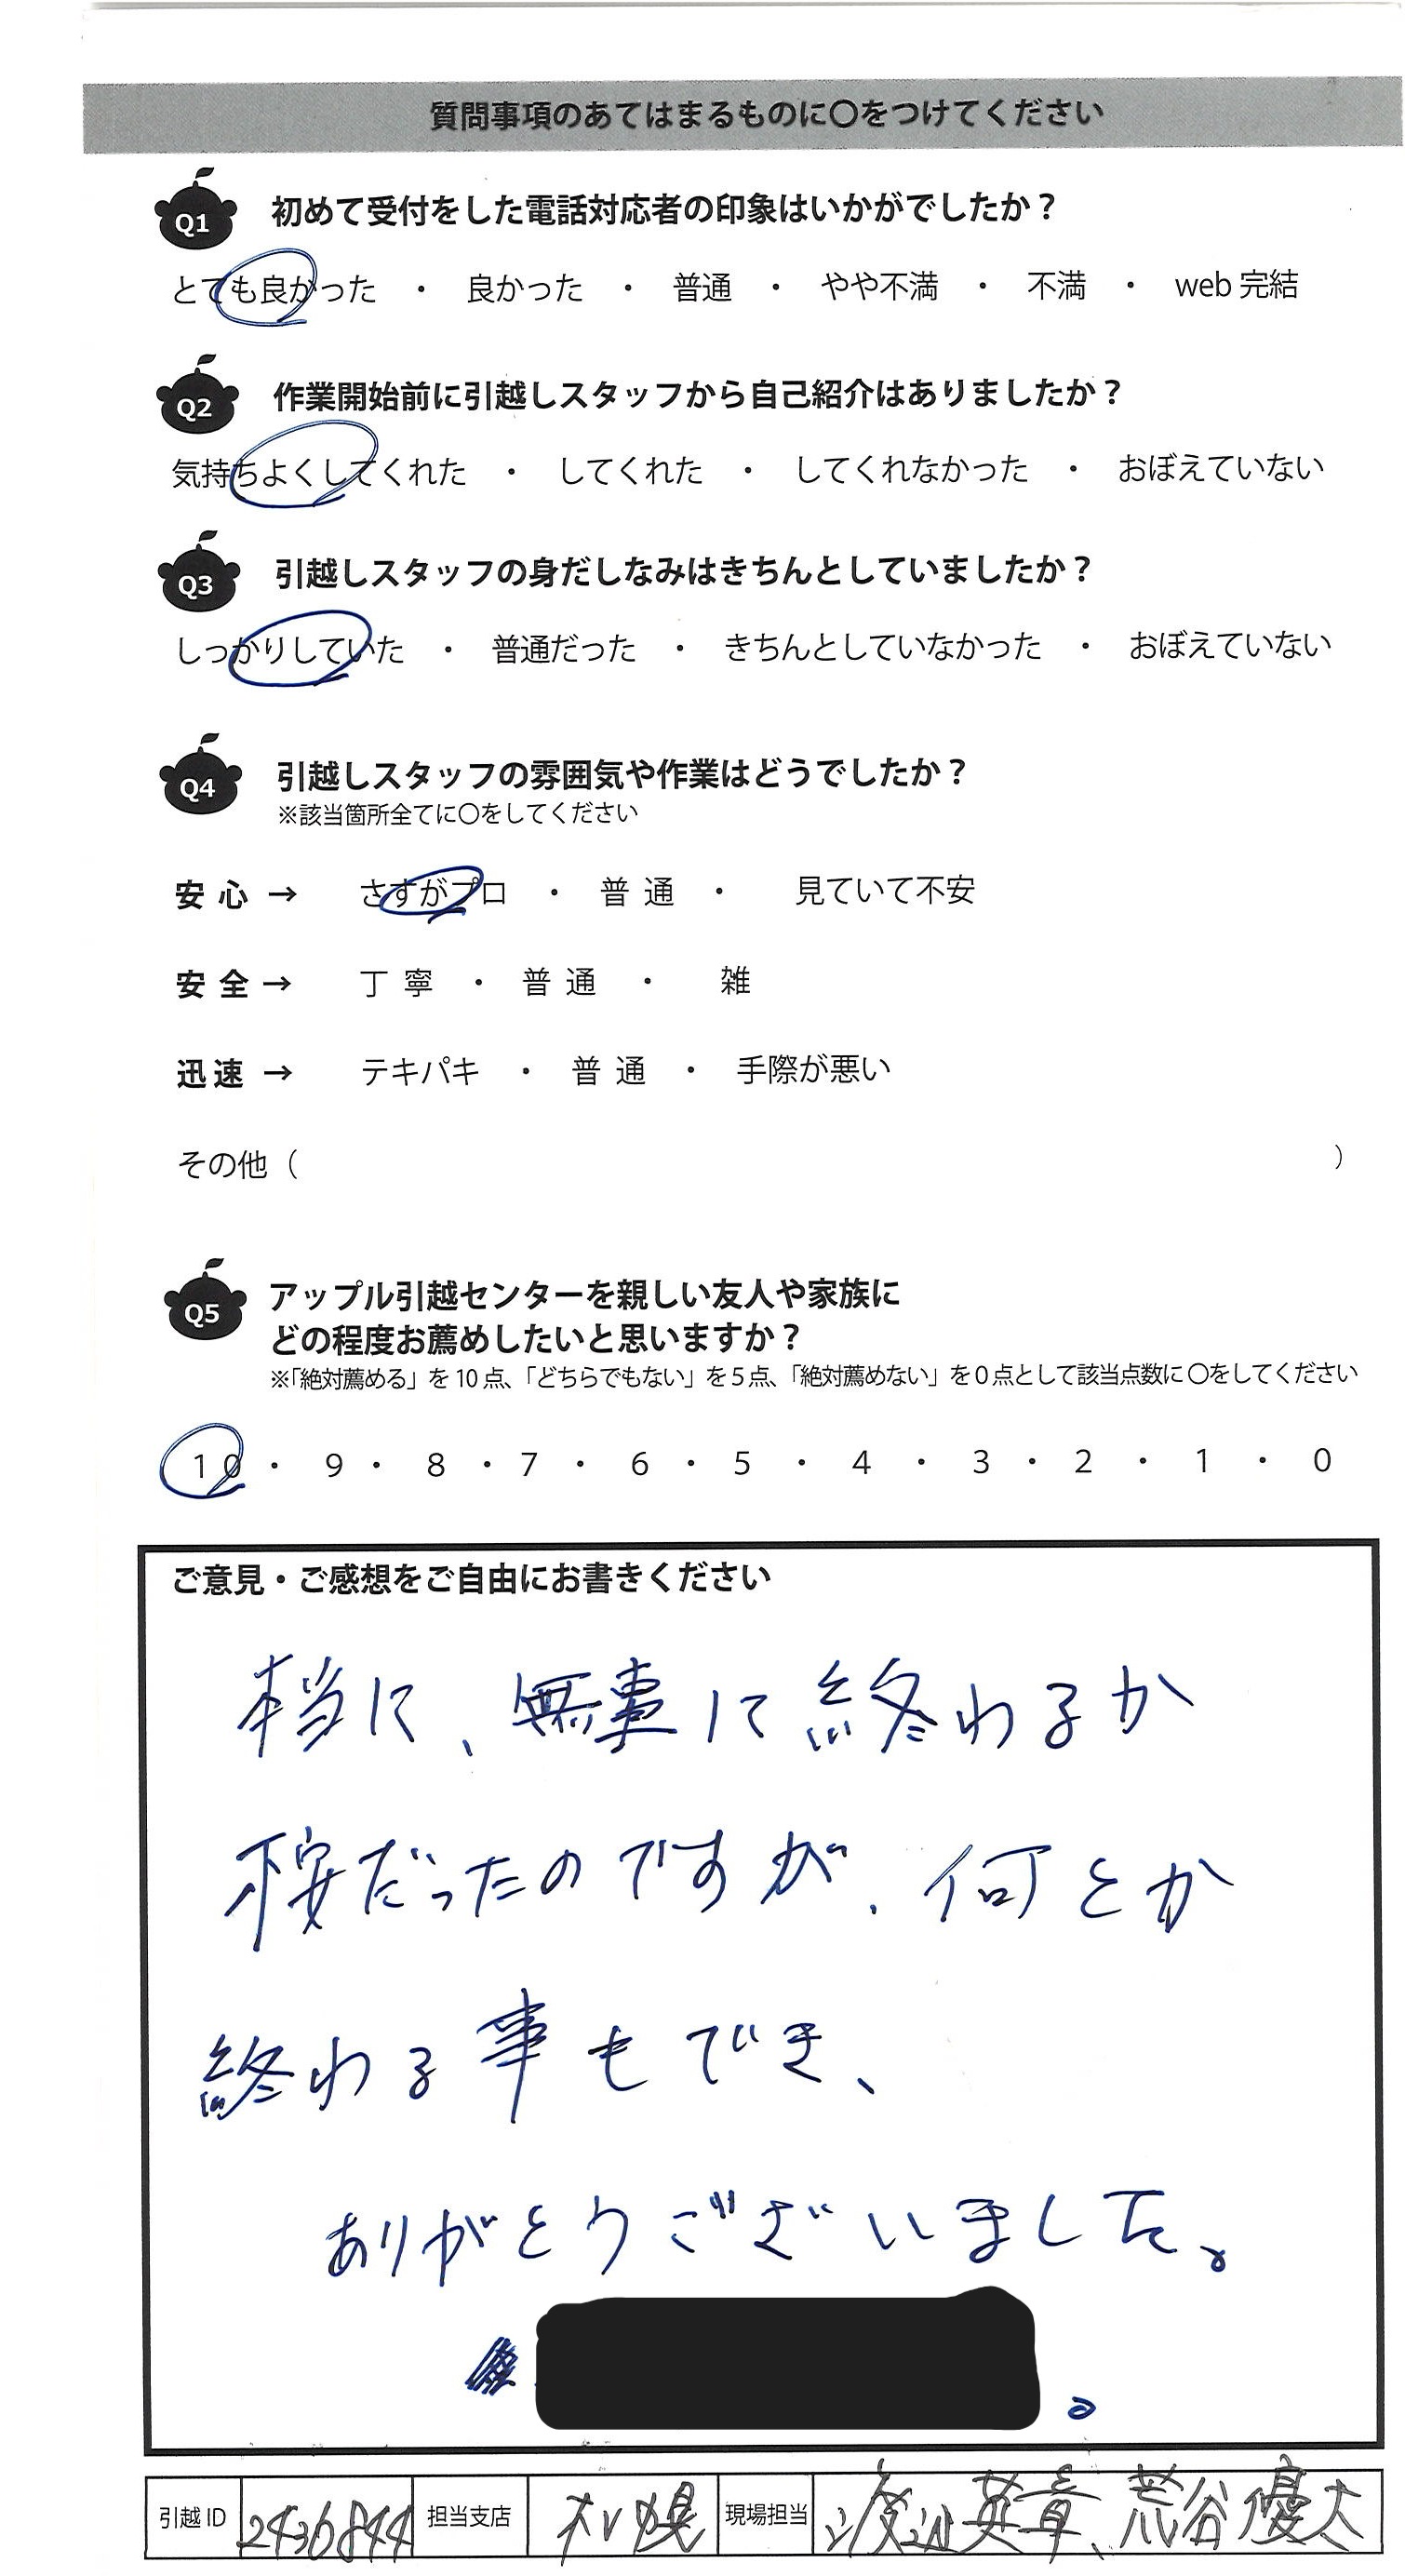 質問事項のあてはまるものに〇をつけてください
Q1 初めて受付をした電話対応者の印象はいかがでしたか？
とても良かった ・ 良かった ・ 普通 ・ やや不満 ・ 不満 ・ web 完結
Q2 作業開始前に引越しスタッフから自己紹介はありましたか？
気持ちよくしてくれた ・ してくれた ・ してくれなかった ・ おぼえていない
Q3 引越しスタッフの身だしなみはきちんとしていましたか？
しっかりしていた ・ 普通だった ・ きちんとしていなかった ・ おぼえていない
Q4 引越しスタッフの雰囲気や作業はどうでしたか？
※該当箇所全てに〇をしてください
安心 → さすがプロ ・ 普通 ・ 見ていて不安
安全 → 丁寧 ・ 普通 ・ 雑
迅速 → テキパキ ・ 普通 ・ 手際が悪い
その他（ ）
Q5 アップル引越センターを親しい友人や家族に
どの程度お薦めしたいと思いますか？
※「絶対薦める」を 10 点、「どちらでもない」を 5 点、「絶対薦めない」を 0 点として該当点数に 〇をしてください
10 ・ 9 ・ 8 ・ 7 ・ 6 ・ 5 ・ 4 ・ 3 ・ 2 ・ 1 ・ 0
ご意見・ご感想をご自由にお書きください
本当に、無事に終わるか
不安だったのですが、何とか
終わる事もでき、
ありがとうございました。
引越 ID 2436844 担当支店 札幌 現場担当 渡辺英章、荒谷優太